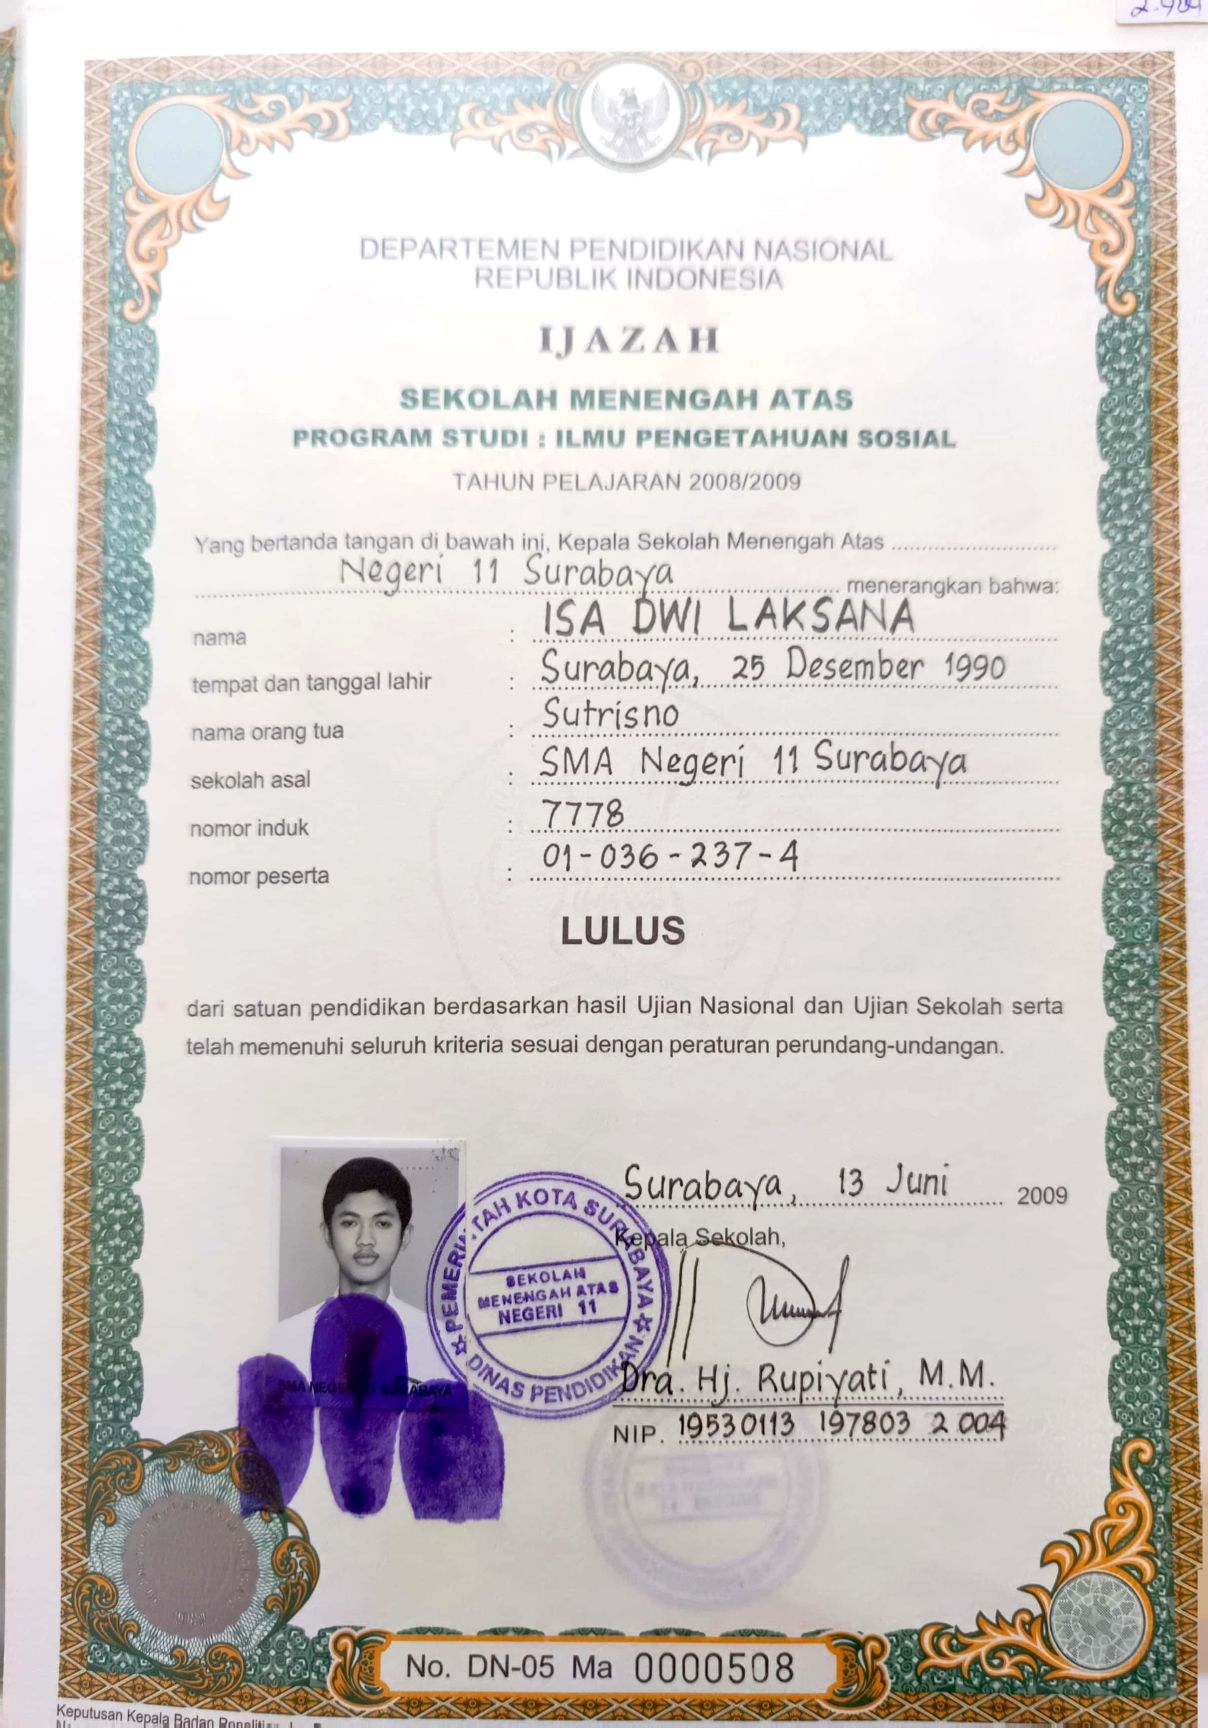 DEPARTEMEN PENDIDIKAN NASIONAL
REPUBLIK INDONESIA
IJAZAH
SEKOLAH MENENGAH ATAS
PROGRAM STUDI : ILMU PENGETAHUAN SOSIAL
TAHUN PELAJARAN 2008/2009
Yang bertanda tangan di bawah ini, Kepala Sekolah Menengah Atas
Negeri 11 Surabaya menerangkan bahwa:
nama : ISA DWI LAKSANA
tempat dan tanggal lahir : Surabaya, 25 Desember 1990
nama orang tua : Sutrisno
sekolah asal : SMA Negeri 11 Surabaya
nomor induk : 7778
nomor peserta : 01-036-237-4
LULUS
dari satuan pendidikan berdasarkan hasil Ujian Nasional dan Ujian Sekolah serta
telah memenuhi seluruh kriteria sesuai dengan peraturan perundang-undangan.
Surabaya, 13 Juni 2009
Kepala Sekolah,
PEMERINTAH KOTA SURABAYA
SEKOLAH
MENENGAH ATAS
NEGERI 11
DINAS PENDIDIKAN
Dra. Hj. Rupiyati, M.M.
NIP. 19530113 197803 2 004
SMA NEGERI 11 SURABAYA
No. DN-05 Ma 0000508
Keputusan Kepala Badan